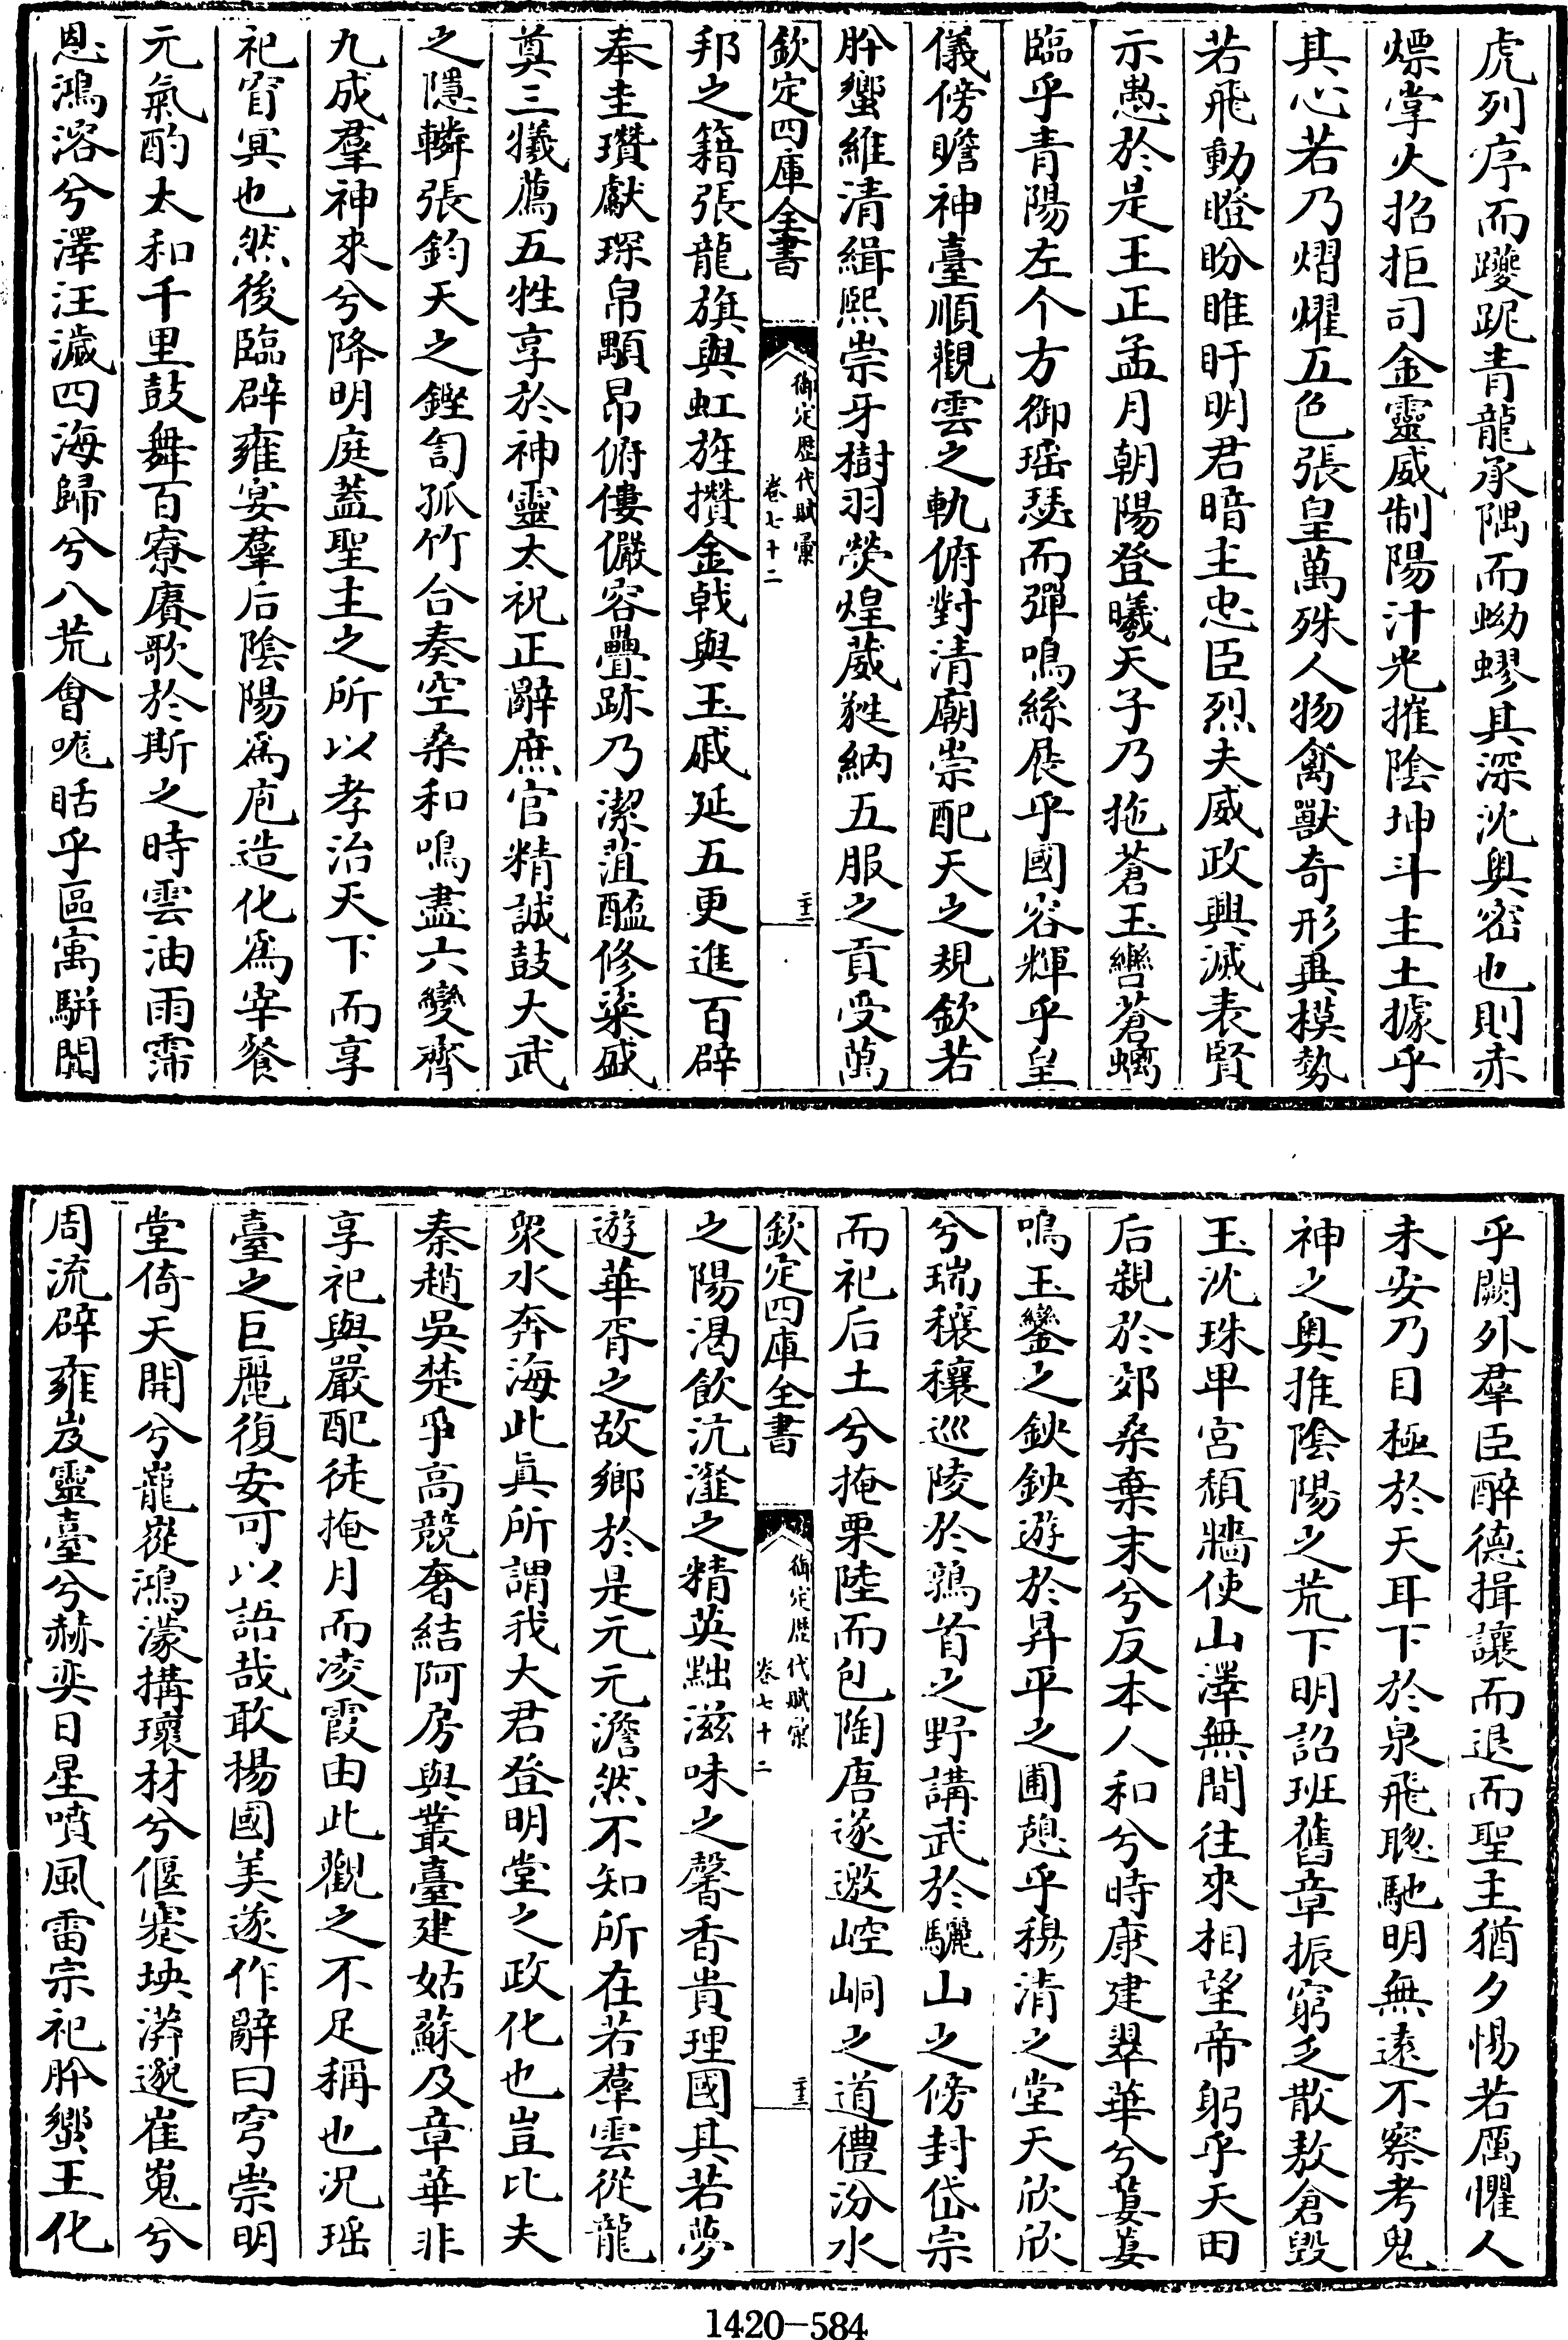 虎列序而躨跜青龍承隅而蚴蟉其深沈奥密也則赤
熛掌火招拒司金靈威制陽汁光摧陰坤斗主土據乎
其心若乃熠燿五色張皇萬殊人物禽獸奇形異模勢
若飛動瞪盼睢盱明君暗主忠臣烈夫威政興滅表賢
示愚於是王正孟月朝陽登曦天子乃施蒼玉轡蒼螭
臨乎青陽左个方御瑶瑟而彈鳴絲展乎國容輝乎皇
儀傍瞻神臺順觀雲之軌俯對清廟崇配天之規欽若
肸蠁維清緝熙崇牙樹羽熒煌葳蕤納五服之貢受萬
欽定四庫全書
御定歴代賦彙
卷七十二
主
邦之籍張龍旗與虹旌攢金戟與玉戚延五更進百辟
奉圭瓚獻琛帛顒昂俯僂儼容疊跡乃潔菹醢修粢盛
奠三犧薦五牲享於神靈太祝正辭庶官精誠鼓大武
之隱轔張鈞天之鏗訇孤竹合奏空桑和鳴盡六變齊
九成羣神來兮降明庭蓋聖主之所以孝治天下而享
祀窅冥也然後臨辟雍宴羣后陰陽爲庖造化爲宰餐
元氣酌太和千里鼓舞百寮賡歌於斯之時雲油雨霈
恩鴻溶兮澤汪濊四海歸兮八荒會哤聒乎區㝢駢闐
乎闕外羣臣醉德揖讓而退而聖主猶夕惕若厲懼人
未安乃目極於天耳下於泉飛聰馳明無遠不察考鬼
神之奥推陰陽之荒下明詔班舊章振窮乏散敖倉毁
玉沈珠卑宮頽牆使山澤無間往來相望帝躬乎天田
后親於郊桑棄末兮反本人和兮時康建翠華兮萋萋
鳴玉鑾之鉠鉠遊於昇平之圃憩乎穆清之堂天欣欣
兮瑞穰穰巡陵於鶉首之野講武於驪山之傍封岱宗
而祀后土兮掩栗陸而包陶唐遂邀崆峒之道禮汾水
欽定四庫全書
御定歴代賦彙
卷七十二
之陽渇飲沆瀣之精英黜滋味之馨香貴理國其若夢
遊華胥之故鄉於是元元澹然不知所在若羣雲從龍
衆水奔海此眞所謂我大君登明堂之政化也豈比夫
秦趙吳楚爭高競奢結阿房與叢臺建姑蘇及章華非
享祀與嚴配徒掩月而凌霞由此觀之不足稱也况瑶
臺之巨麗復安可以語哉敢揚國美遂作辭曰穹崇明
堂倚天開兮巃嵸鴻濛搆瓌材兮偃蹇坱漭邈崔嵬兮
周流辟雍岌靈臺兮赫奕日星噴風雷宗祀肸蠁王化
1420-584